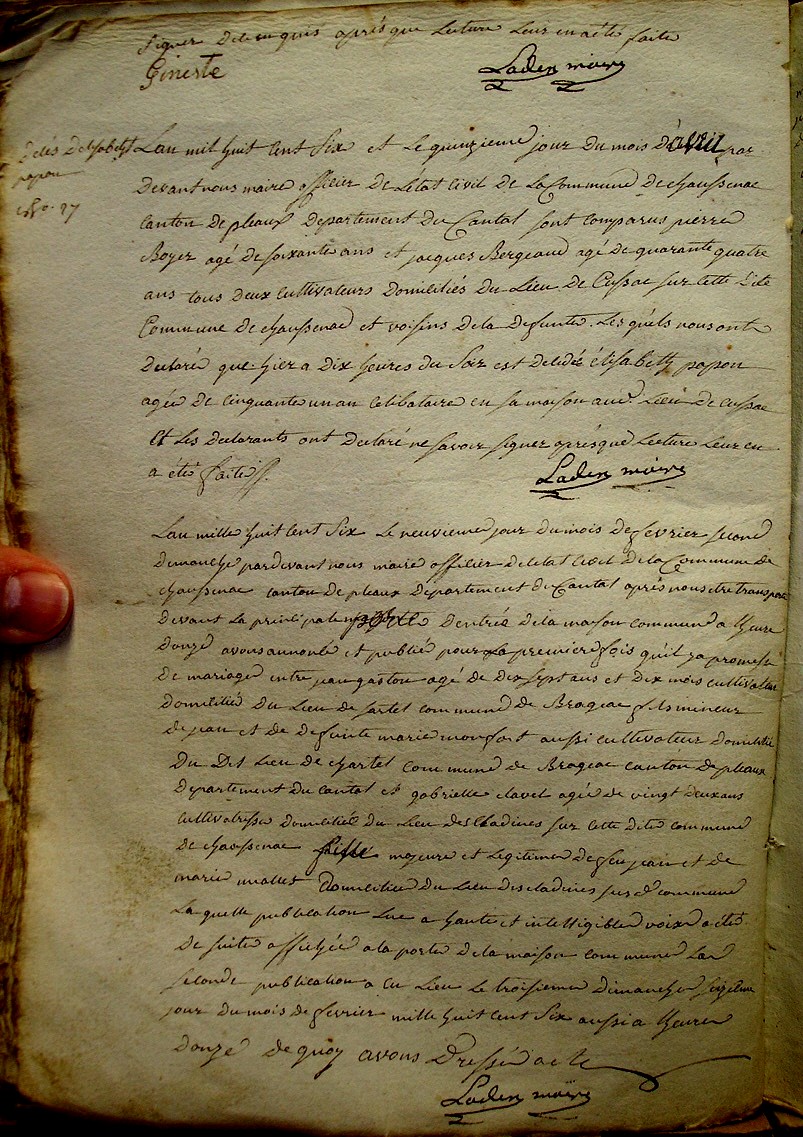 signer de ce enquis après que lecture leur en a été faite
Gineste Laden maire
Décès d'Elisabeth
papon
Lan mil huit cent Six et le quinzieme jour du mois d'avril par
devant nous maire officier de l'état Civil de la Commune de chaussenac
canton de pleaux departement du Cantal sont comparus pierre
Boyer agé de soixante ans et jacques Bergeaud agé de quarante quatre
ans tous deux cultivateurs domiciliés du Lieu de Cussac sur cette dite
Commune de chaussenac et voisins de la defunte. Les quels nous ont
declaré que hier a dix heures du soir est decedée élisabeth papon
agée de cinquante un an celibataire en sa maison aud. Lieu de cussac
et les declarants ont declaré ne savoir signer après que lecture leur en
a été faite
Laden maire
Lan mille huit cent Six le neuvieme jour du mois de fevrier second
dimanche pardevant nous maire officier de letat civil de la Commune de
chaussenac canton de pleaux departement du Cantal après nous etre transporté
devant la principale porte dentrée de la maison commune a heure
donze avons annoncé et publié pour la premiere fois quil ya promesse
de mariage entre jean gaston agé de dix sept ans et dix mois cultivateur
domicilié du Lieu de jartel commune de Brageac fils mineur
de jean et de defunte marie monfort aussi cultivateur domicilié
du dit Lieu de chartel commune de Brageac canton de pleaux
departement du cantal et gabrielle clavel agée de vingt deux ans
cultivatrisse domiciliée du Lieu des Cladines sur cette dite commune
de chaussenac fille majeure et legitime de feu jean et de
marie domiciliée du Lieu des cladines sus d. commune
La quelle publication lue a haute et intelligible voix a été
de suite affichée a la porte de la maison commune La
seconde publication a eu Lieu le troisieme dimanche seizieme
jour du mois de fevrier mille huit cent Six aussi a heure
donze de quoy avons dressé acte
Laden maire